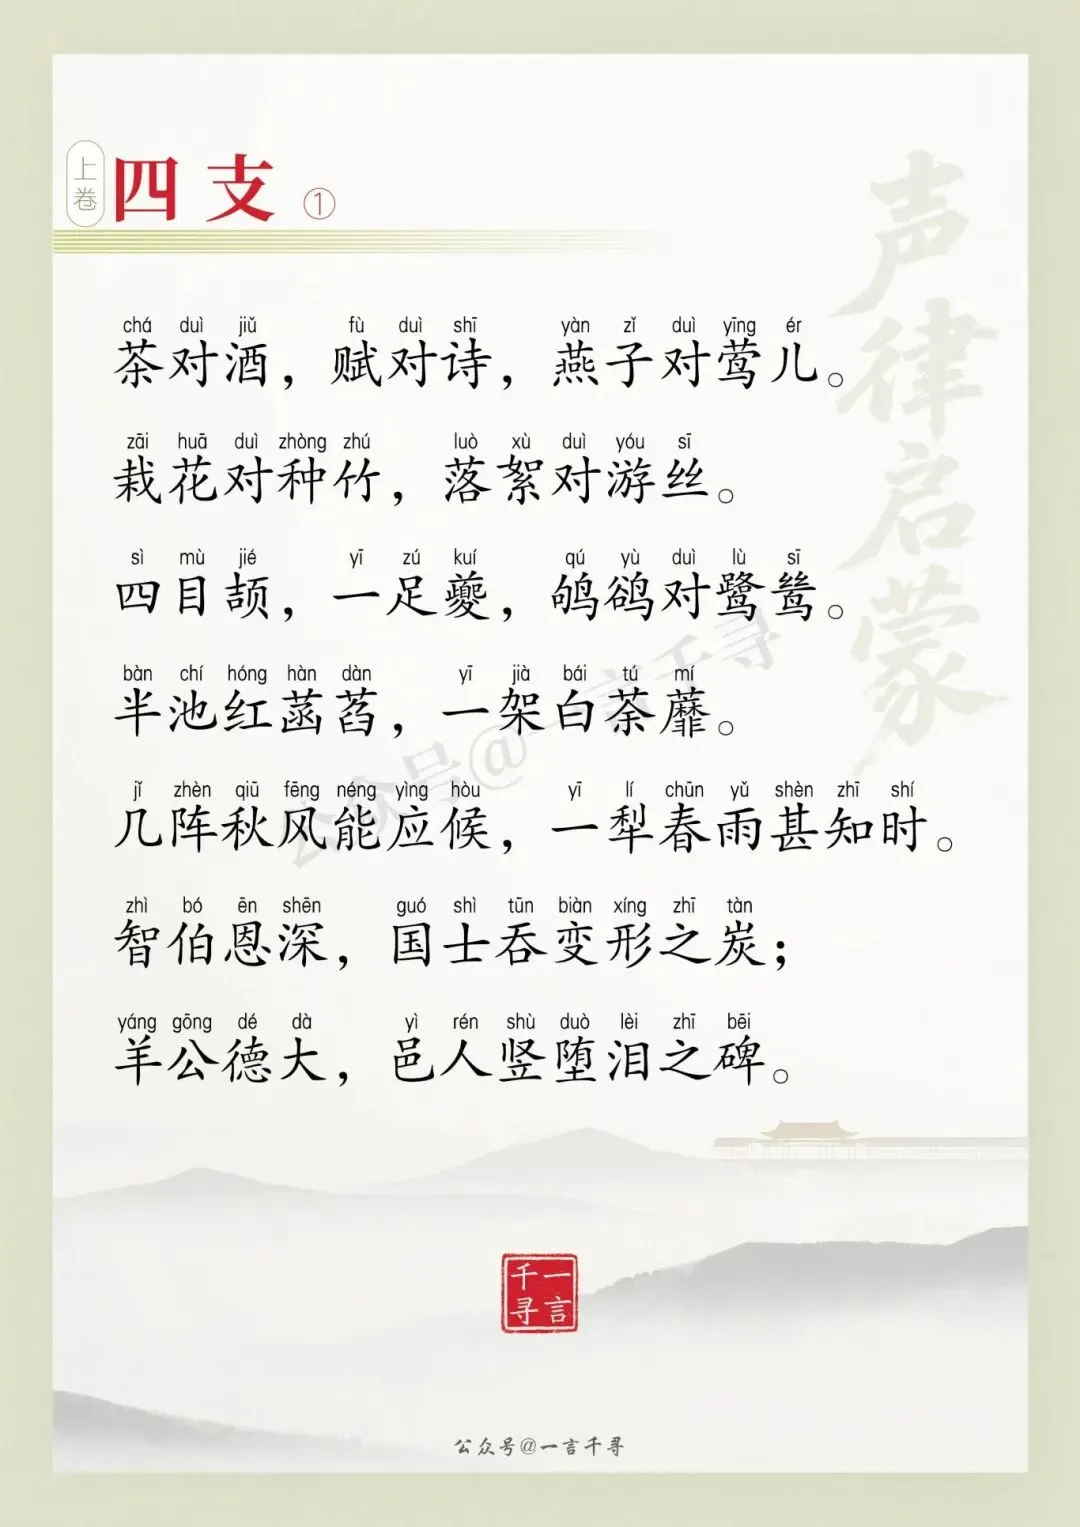 上卷
四支 ①
声律启蒙
chá duì jiǔ fù duì shī yàn zǐ duì yīng ér
茶对酒，赋对诗，燕子对莺儿。
zāi huā duì zhòng zhú luò xù duì yóu sī
栽花对种竹，落絮对游丝。
sì mù jié yī zú kuí qú yù duì lù sī
四目颉，一足夔，鸲鹆对鹭鸶。
bàn chí hóng hàn dàn yī jià bái tú mí
半池红菡萏，一架白荼蘼。
jǐ zhèn qiū fēng néng yìng hòu yī lí chūn yǔ shèn zhī shí
几阵秋风能应候，一犁春雨甚知时。
zhì bó ēn shēn guó shì tūn biàn xíng zhī tàn
智伯恩深，国士吞变形之炭；
yáng gōng dé dà yì rén shù duò lèi zhī bēi
羊公德大，邑人竖堕泪之碑。
公众号@一言千寻
一言千寻
公众号@一言千寻